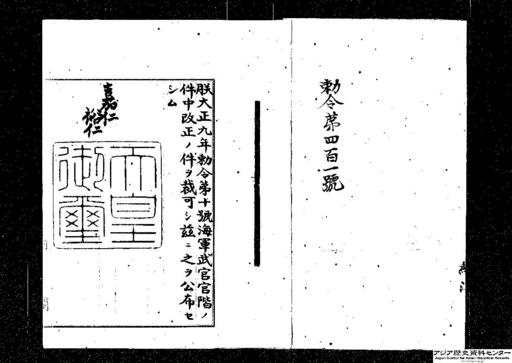 勅令第四百一號
朕大正九年勅令第十號海軍武官官階ノ
件中改正ノ件ヲ裁可シ茲ニ之ヲ公布セ
シム
嘉仁
裕仁
天皇
御璽
アジア歴史資料センター
Japan Center for Asian Historical Records